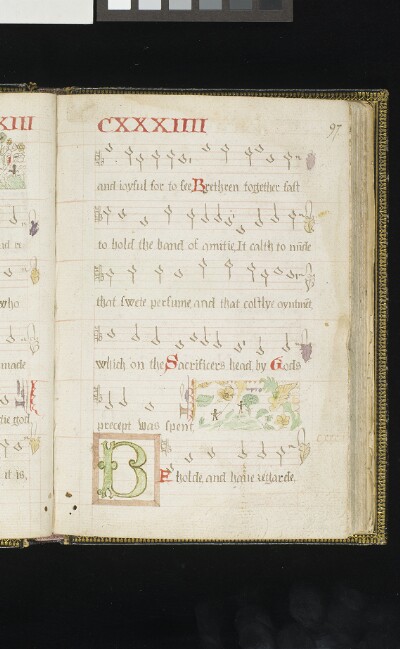 XIII
CXXXIIII
97
and ioyful for to see Brethren together fast
to hold the band of amitie, It calth to mīde
that swete perfume, and that costlye oyntmēt,
who
which on the Sacrificers head by Gods
made
precept was spent
god
BE holde, and haue regarde,
it is,